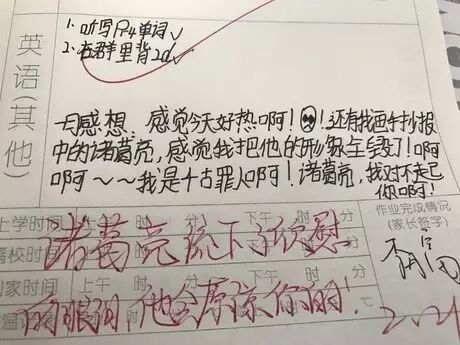 英语(其他)
1. 听写P4单词√
2. 在群里背2d√
一日感想：感觉今天好热啊！！还有我画手抄报
中的诸葛亮，感觉我把他的形象全毁了！啊
啊啊～～我是千古罪人啊！诸葛亮，我对不起
你啊！
上学时间 上午 时 分 下午 时 分
作业完成情况
(家长签字)
诸葛亮流下了欣慰
离校时间 上午 时 分 下午 时 分
家时间 上午 时 分 下午 时 分
的眼泪，他会原谅你的！
℃